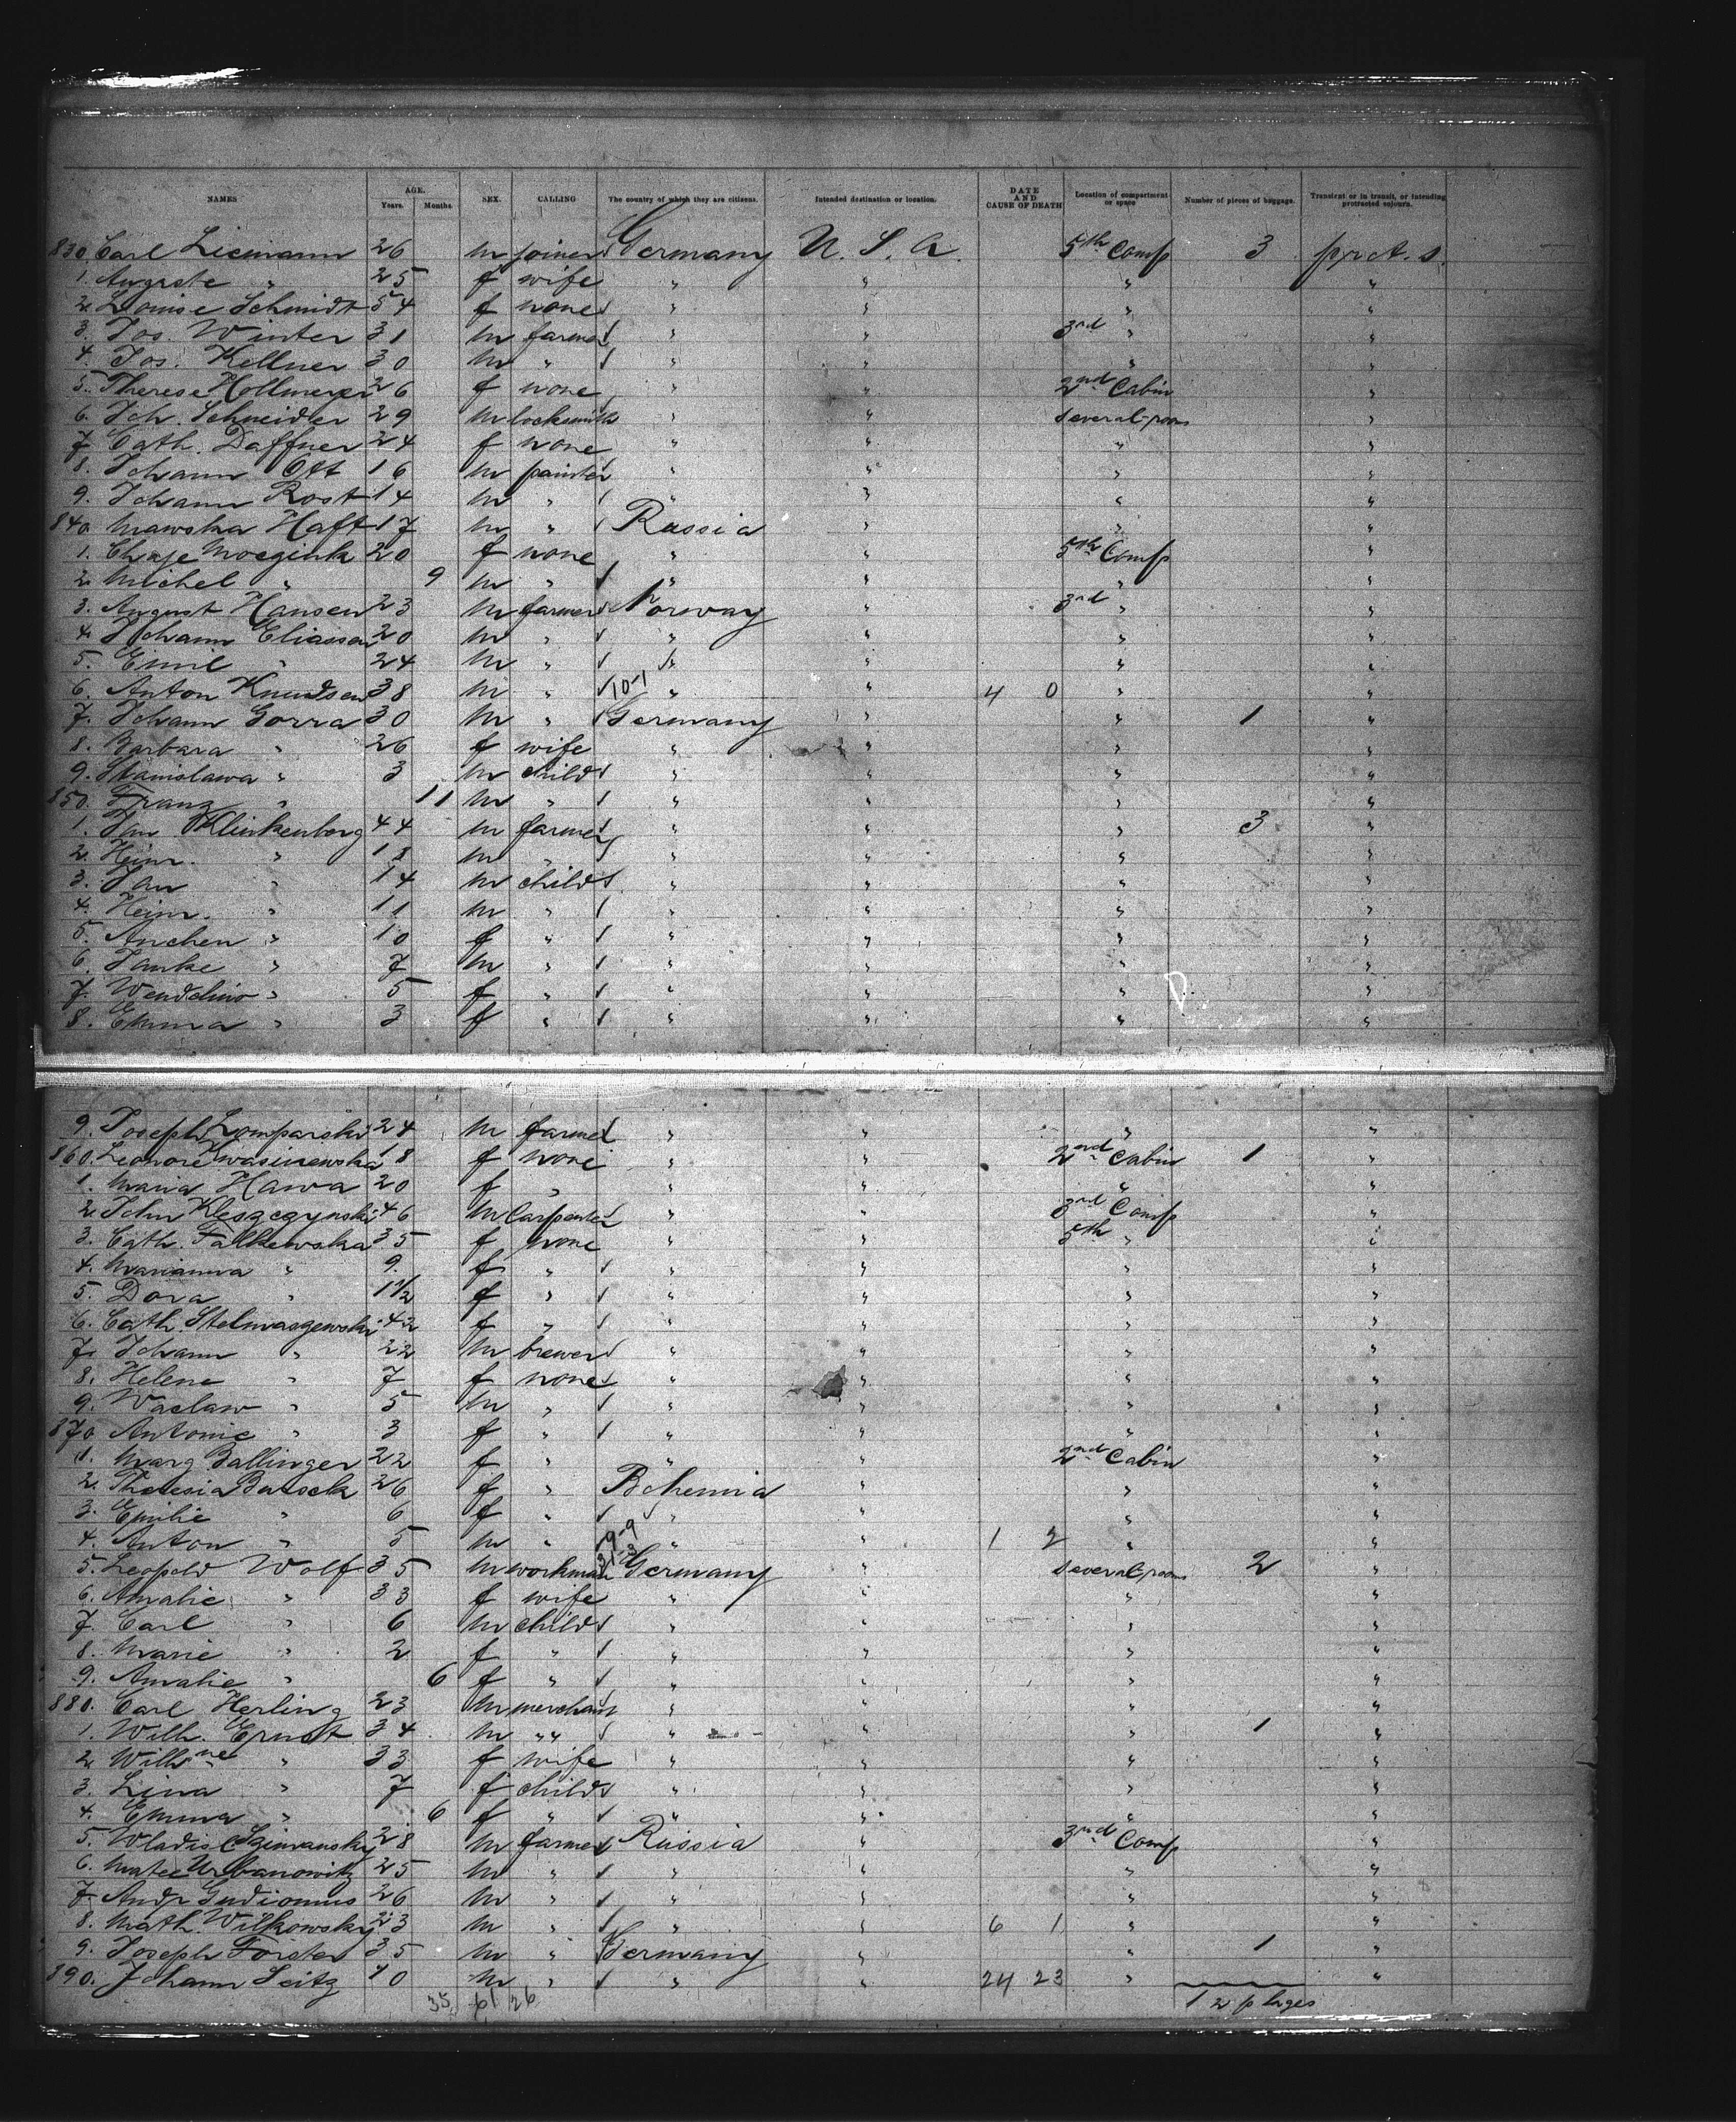 NAMES AGE. Years. Months. SEX. CALLING The country of which they are citizens. Intended destination or location. DATE AND CAUSE OF DEATH Location of compartment or space Number of pieces of baggage. Transient or in transit, or intending protracted sojourn.
830. Carl Liemann 26 m joiner Germany U. S. A. 5th Comp 3 prot. s.
1. Auguste " 25 f wife " " " "
2. Louise Schmidt 54 f none " " " "
3. Jos. Winter 31 m farmer " " 3rd " "
4. Jos. Kellner 30 m " " " " "
5. Therese Hollmeyer 26 f none " " 2nd Cabin "
6. Joh. Schneider 29 m locksmith " " several-room "
7. Cath. Daffner 24 f none " " " "
8. Johann Ott 16 m painter " " " "
9. Johann Rost 14 m " " " " "
840 Mawska Haft 17 m " Russia " " "
1. Chaje 20 f none " " 5th Comp "
2. Michel " 9 m " " " " "
3. August Hansen 23 m farmer Norway " 3rd " "
4. Johann Eliassen 20 m " " " " "
5. Emil " 24 m " " " " "
6. Anton Knudsen 38 m " 10-1 " " 4 0 " "
7. Johann Gorra 30 m " Germany " " 1 "
8. Barbara " 26 f wife " " " "
9. Stanislawa " 3 m child " " " "
850. Franz " 11 m " " " " "
1. Jan Klinkenborg 44 m farmer " " " 3 "
2. Heinr. " 18 m " " " " "
3. Jan " 14 m child " " " "
4. Heinr. " 11 m " " " " "
5. Anchen " 10 f " " " " "
6. Janke " 7 m " " " " "
7. " 5 f " " " " "
8. Emma " 3 f " " " " "
9. Joseph Lomparski 24 m farmer " " " "
860. Leonore Kwasinewska 18 f none " " 2nd Cabin 1 "
1. Maria Hawa 20 f " " " " "
2. John 46 m Carpenter " " 3rd Comp "
3. Cath. Falkewska 35 f none " " 5th " "
4. Marianna " 9. f " " " " "
5. Dora " 1 1/2 f " " " " "
6. Cath. Stelmaszewski 42 f " " " " "
7. Johann " 22 m brewer " " " "
8. Helene " 7 f none " " " "
9. Waclaw " 5 m " " " " "
870 Antonie " 3 f " " " " "
1. Marg. Ballinger 22 f " " " 2nd Cabin "
2. Theresia 26 f " Bohemia " " "
3. Emilie " 6 f " " " " "
4. Anton " 5 m " 9-9 " " 1 2 " "
5. Leopold Wolf 35 m workman 31-3 Germany " several-room 2 "
6. Amalie " 33 f wife " " " "
7. Carl " 6 m child " " " "
8. Marie " 2 f " " " " "
9. Amalie " 6 f " " " " "
880. Carl Herling 23 m merchant " " " "
1. Wilh. Ernst 34 m " " " " " 1 "
2. Wilhne " 33 f wife " " " "
3. Lina " 7 f child " " " "
4. Emma " 6 f " " " " "
5. Wladis. Szimansky 28 m farmer Russia " 3rd Comp "
6. Matee Urbanowitz 25 m " " " " "
7. Andr. Gudionius 26 m " " " " "
8. Math. Wilkowsky 23 m " " " 6 1 " "
9. Joseph Forster 35 m " Germany " " 1 "
890. Johann Seitz 40 m " " " 24 23 " "
35 61 26 12 plages